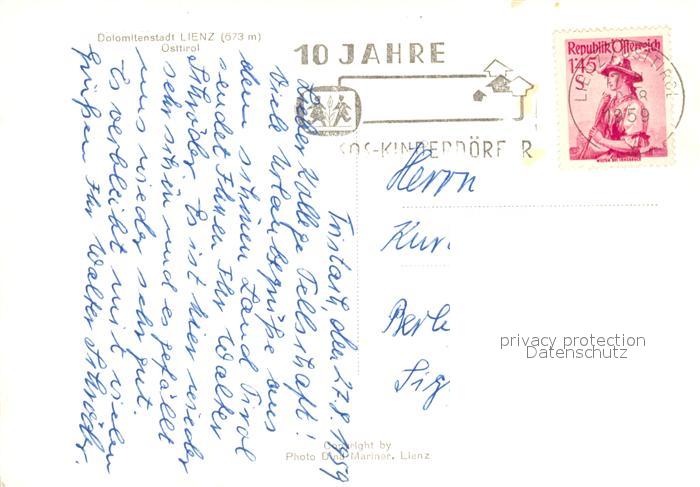 Dolomitenstadt LIENZ (673 m)
Osttirol
10 JAHRE
SOS-KINDERDÖRFER
Republik Österreich
1.45
LIENZ OSTTIROL
Tristach, den 27.8.1959
Lieber Kollege Tellschaft!
Viele Urlaubsgrüße aus
dem schönen Land Tirol
sendet Ihnen Ihr Walter
Schröder. Es ist hier wieder
sehr schön und es gefällt
uns wieder sehr gut.
Es verbleibt mit vielen
Grüßen Ihr Walter Schröder.
Herrn
Kur
Berl
Sig
privacy protection
Datenschutz
Copyright by
Photo Dina Mariner, Lienz